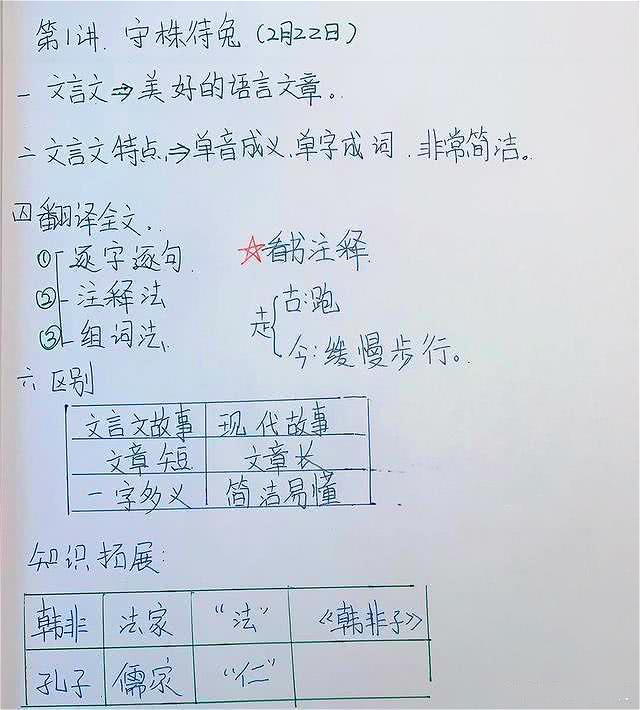 第1讲. 守株待兔(2月22日)
一 文言文⇒美好的语言文章。
二 文言文特点⇒单音成义、单字成词. 非常简洁。
四 翻译全文。
①逐字逐句 ☆看书注释.
②注释法 走 古:跑
③组词法 今:缓慢步行。
六 区别
文言文故事 现代故事
文章短 文章长
一字多义 简洁易懂
知识拓展:
韩非 法家 “法” 《韩非子》
孔子 儒家 “仁”